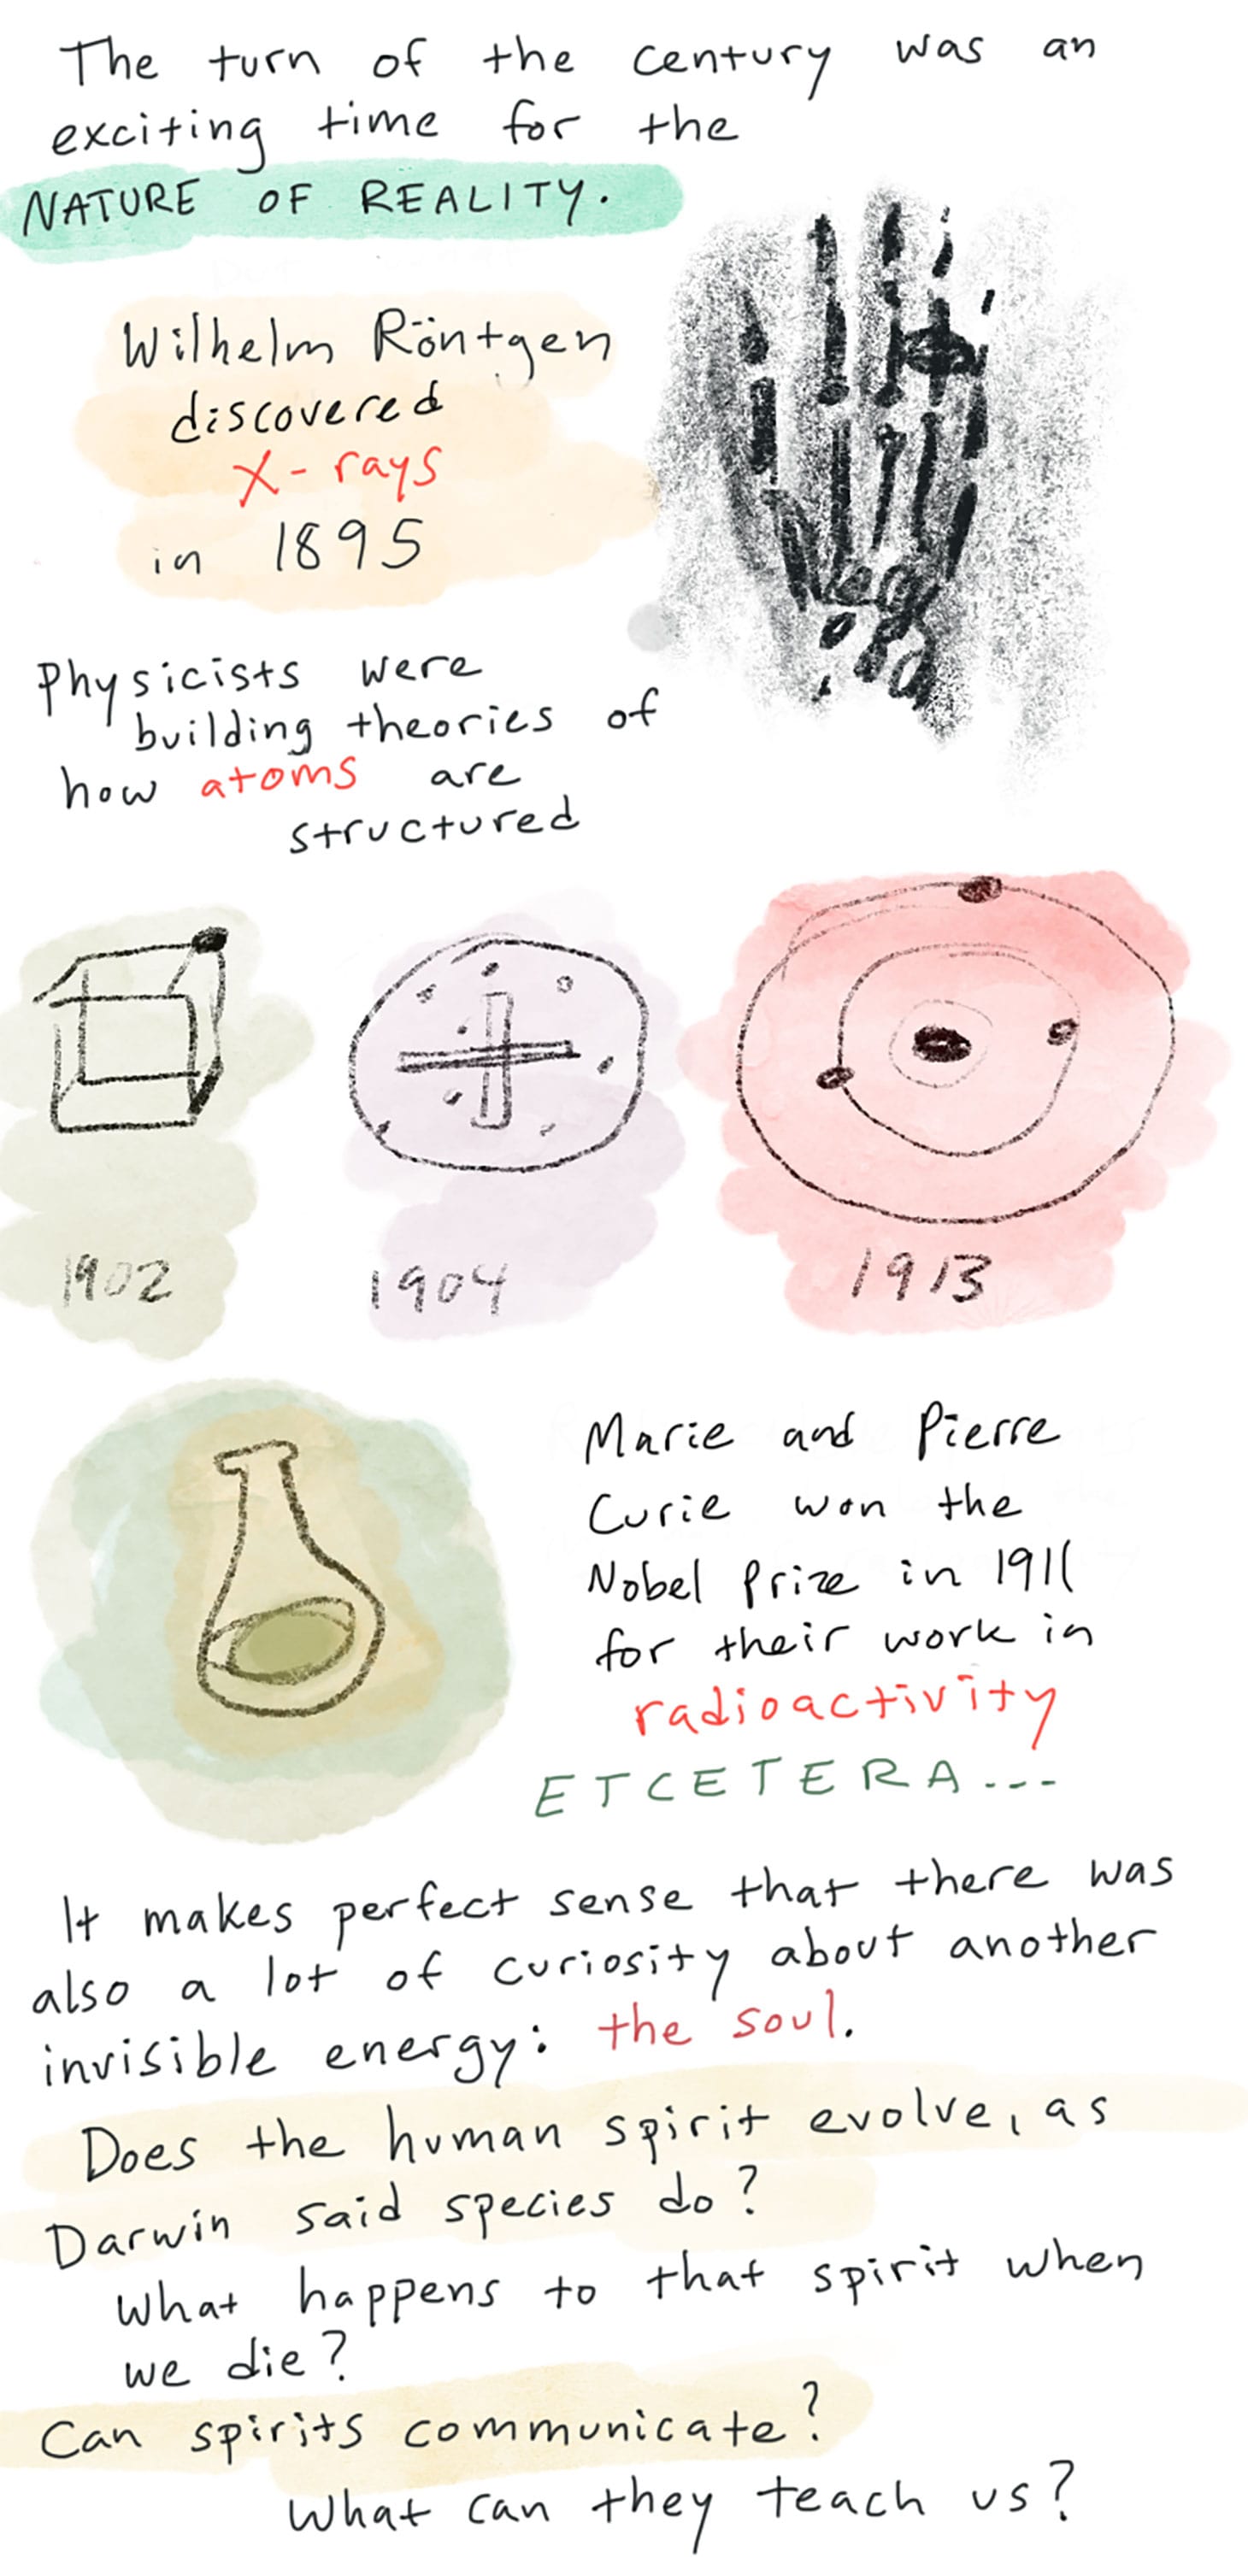 The turn of the century was an
exciting time for the
NATURE OF REALITY.
Wilhelm Röntgen
discovered
X-rays
in 1895
Physicists were
building theories of
how atoms are
structured
1902
1904
1913
Marie and Pierre
Curie won the
Nobel Prize in 1911
for their work in
radioactivity
ETCETERA...
It makes perfect sense that there was
also a lot of curiosity about another
invisible energy: the soul.
Does the human spirit evolve, as
Darwin said species do?
What happens to that spirit when
we die?
Can spirits communicate?
What can they teach us?